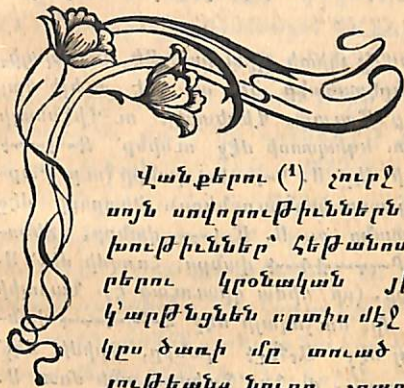 Վանքերու (¹) շուրջ
սոյն սովորութիւններն
խութիւններ՝ հեթանոս
րերու կրօնական յի
կ՚արթնցնեն սրտիս մէջ
կըս, ծառի մը տուած